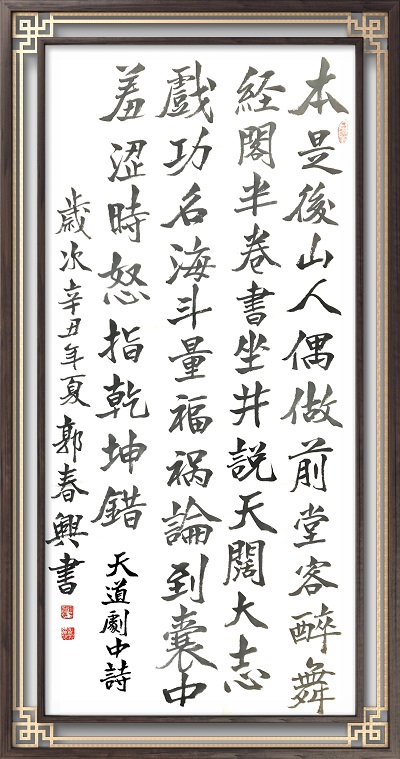 本是後山人偶做前堂客醉舞
経閣半卷書坐井説天闊大志
戲功名海斗量福祸論到囊中
羞澀時怒指乾坤錯
天道劇中詩
歲次辛丑年夏郭春興書